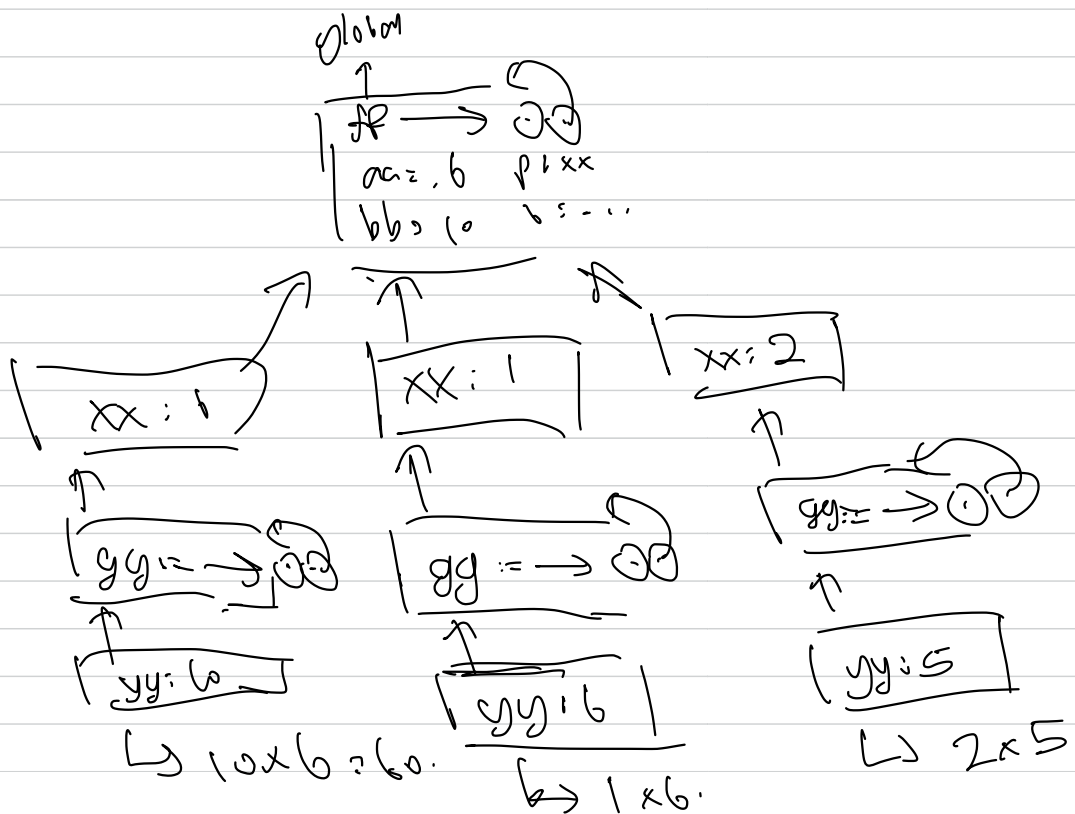 global
ff →
aa = . 6 p : xx
bb = 10 b : - ...
xx : 6
xx : 1
xx : 2
gg := →
gg := →
gg := →
yy : 10
yy : 6
yy : 5
↳ 10 x 6 = 60.
↳ 1 x 6.
↳ 2 x 5